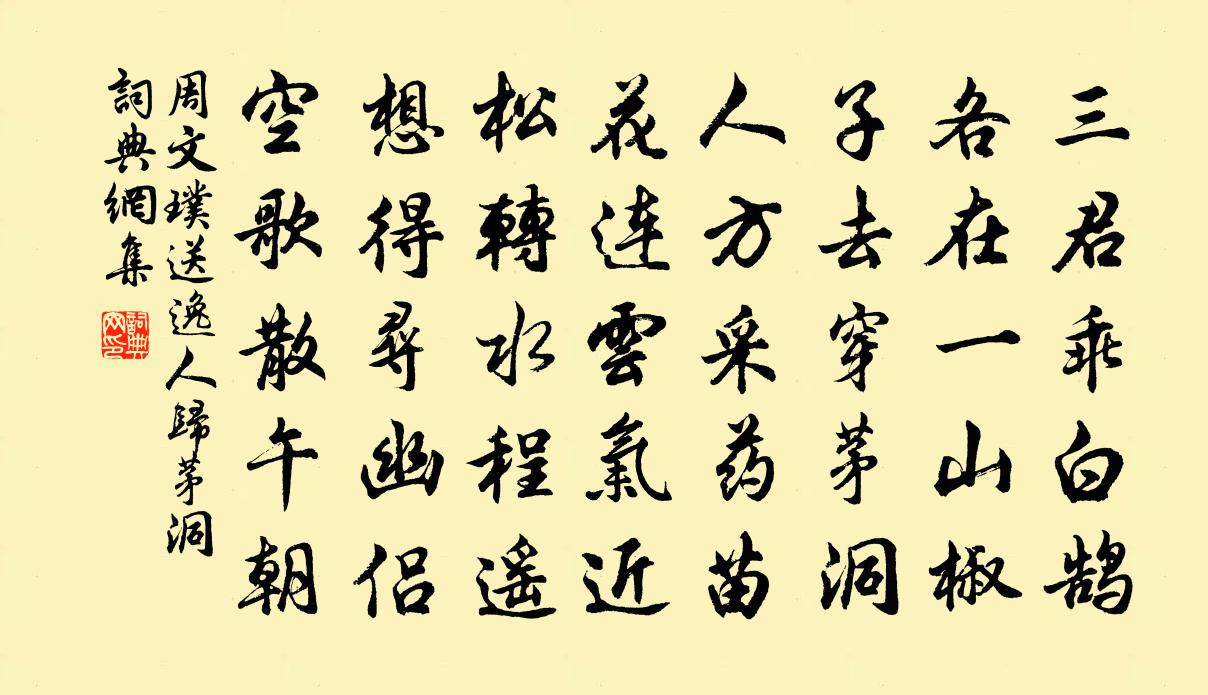 三君乘白鹄
各在一山椒
子去穿茅洞
人方采药苗
花連雲氣近
松轉水程遥
想得尋幽侣
空歌散午朝
周文璞送逸人歸茅洞
詞典網集
詞典
网印